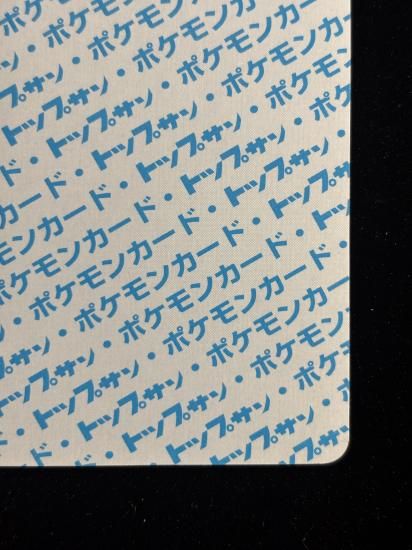 ポケ
ン・ポケモン
プサン・ポケモンカ
トップサン・ポケモンカード
ド・トップサン・ポケモンカー
カード・トップサン・ポケモ
モンカード・トップサン・ポケ
ポケモンカード・トップサン
・ポケモンカード・トッ
・ポケモンカード・
サン・ポケモンカー
トップサン・ポケモン
・トップサン・ポケ
ド・トップサン・
トップサン